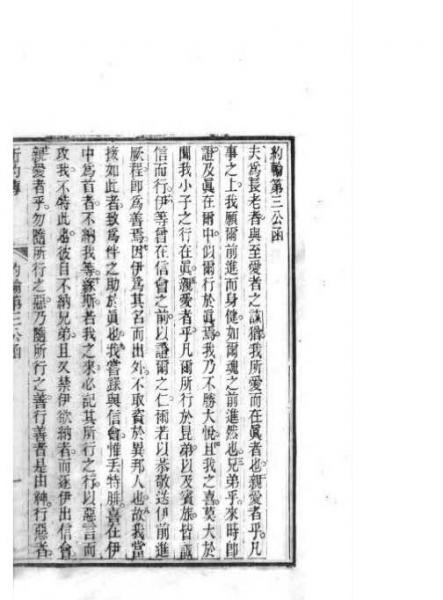 約翰第三公函
夫爲長老者與至愛者之該猶我所愛而在眞者也親愛者乎凡
事之上我願爾前進而身健如爾魂之前進然也兄弟乎來時卽
證及眞在爾中似爾行於眞焉我乃不勝大悅且我之喜莫大於
聞我小子之行在眞親愛者乎凡爾所行於昆弟以及賓旅皆誠
信而行伊等曾在信會之前以證爾之仁爾若以恭敬送伊前進
厥程卽爲善焉因伊爲其名而出外不取資於異邦人也故我當
接如此者致爲伴之助於眞也我嘗錄與信會惟丟特腓喜在伊
中爲首者不納我等蘇斯者我之來必記其所行之行以惡言而
攻我不特此也彼自不納兄弟且又禁伊欲納者而逐伊出信會
親愛者乎勿隨所行之惡乃隨所行之善行善者是由神行惡者
新約傳
約翰第三公函
一